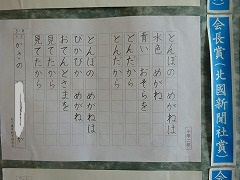 とんぼの めがねは
水色 めがね
青い おそらを
とんだから
とんだから
とんぼの めがねは
ぴかぴか めがね
おてんとさまを
見てたから
見てたから
かさの
会長賞(北國新聞社賞)